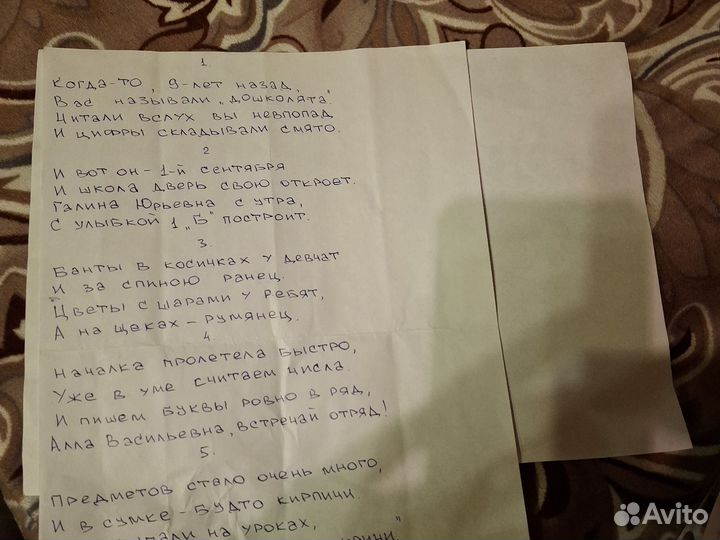 1.
Когда-то, 9-лет назад,
Вас называли „дошколята".
Читали вслух вы невпопад
И цифры складывали смято.
2
И вот он - 1-й сентября
И школа дверь свою откроет.
Галина Юрьевна с утра,
С улыбкой 1 „Б" построит.
3.
Банты в косичках у девчат
И за спиною ранец.
Цветы с шарами у ребят,
А на щеках - румянец.
4.
Началка пролетела быстро,
Уже в уме считаем числа.
И пишем буквы ровно в ряд,
Алла Васильевна, встречай отряд!
5.
Предметов стало очень много,
И в сумке - будто кирпичи.
на уроках,
Avito